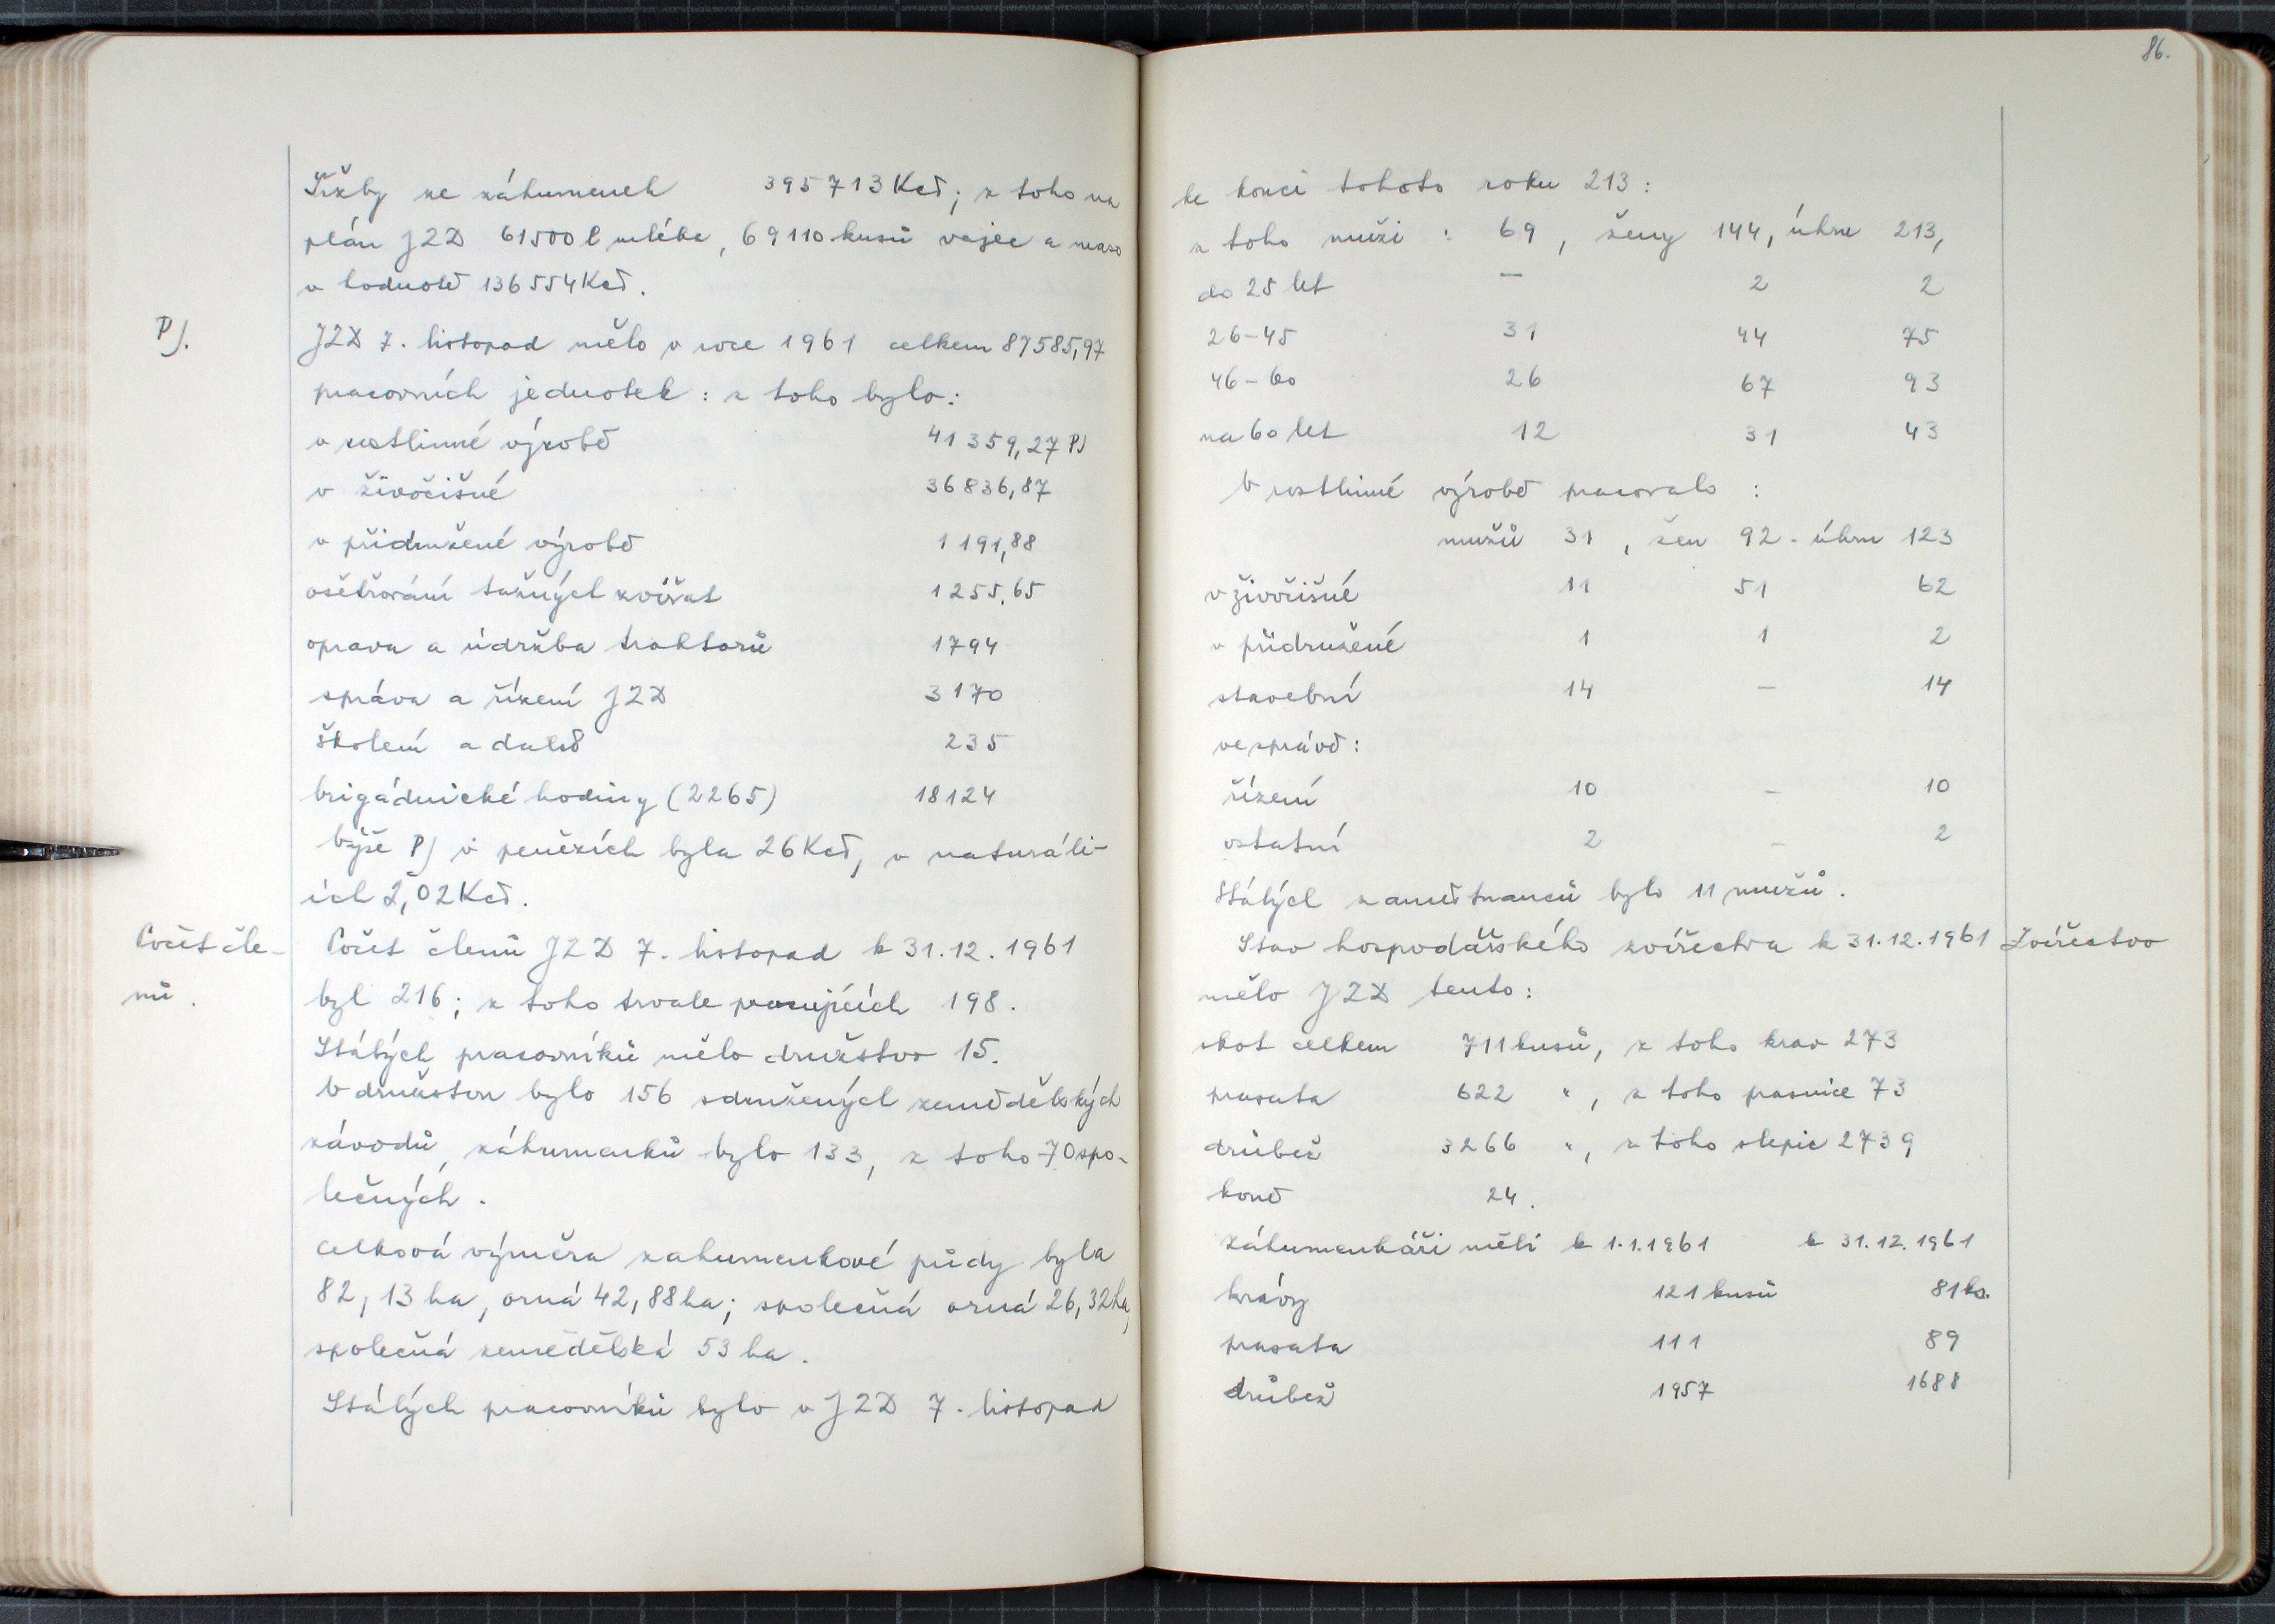 Tržby ze záhumenek 395713 Kčs; z toho na
plán JZD 61500 l mléka, 69110 kusů vajec a maso
v hodnotě 136554 Kčs.
PJ.
JZD 7. listopad mělo v roce 1961 celkem 87585,97
pracovních jednotek: z toho bylo:
v rostlinné výrobě 41359,27 PJ
v živočišné 36836,87
v přidružené výrobě 1191,88
ošetřování tažných zvířat 1255,65
oprava a údržba traktorů 1794
správa a řízení JZD 3170
školení a další 235
brigádnické hodiny (2265) 18124
Výše PJ v penězích byla 26 Kčs, v naturáli-
ích 2,02 Kčs.
Počet čle-
nů.
Počet členů JZD 7. listopad k 31.12.1961
byl 216; z toho trvale pracujících 198.
Stálých pracovníků mělo družstvo 15.
V družstvu bylo 156 sdružených zemědělských
závodů, záhumenků bylo 133, z toho 70 spo-
lečných.
Celková výměra záhumenkové půdy byla
82,13 ha, orná 42,88 ha; společná orná 26,32 ha,
společná zemědělská 53 ha.
Stálých pracovníků bylo v JZD 7. listopad
86.
ke konci tohoto roku 213:
z toho muži: 69, ženy 144, úhrn 213,
do 25 let — 2 2
26-45 31 44 75
46-60 26 67 93
na 60 let 12 31 43
V rostlinné výrobě pracovalo:
mužů 31, žen 92 - úhrn 123
v živočišné 11 51 62
v přidružené 1 1 2
stavební 14 — 14
ve správě:
řízení 10 — 10
ostatní 2 — 2
Stálých zaměstnanců bylo 11 mužů.
Stav hospodářského zvířectva k 31.12.1961
Zvířectvo
mělo JZD tento:
skot celkem 711 kusů, z toho krav 273
prasata 622 " , z toho prasnice 73
drůbež 3266 " , z toho slepic 2739
koně 24.
Záhumenkáři měli k 1.1.1961 k 31.12.1961
krávy 121 kusů 81 ks.
prasata 111 89
drůbež 1957 1688